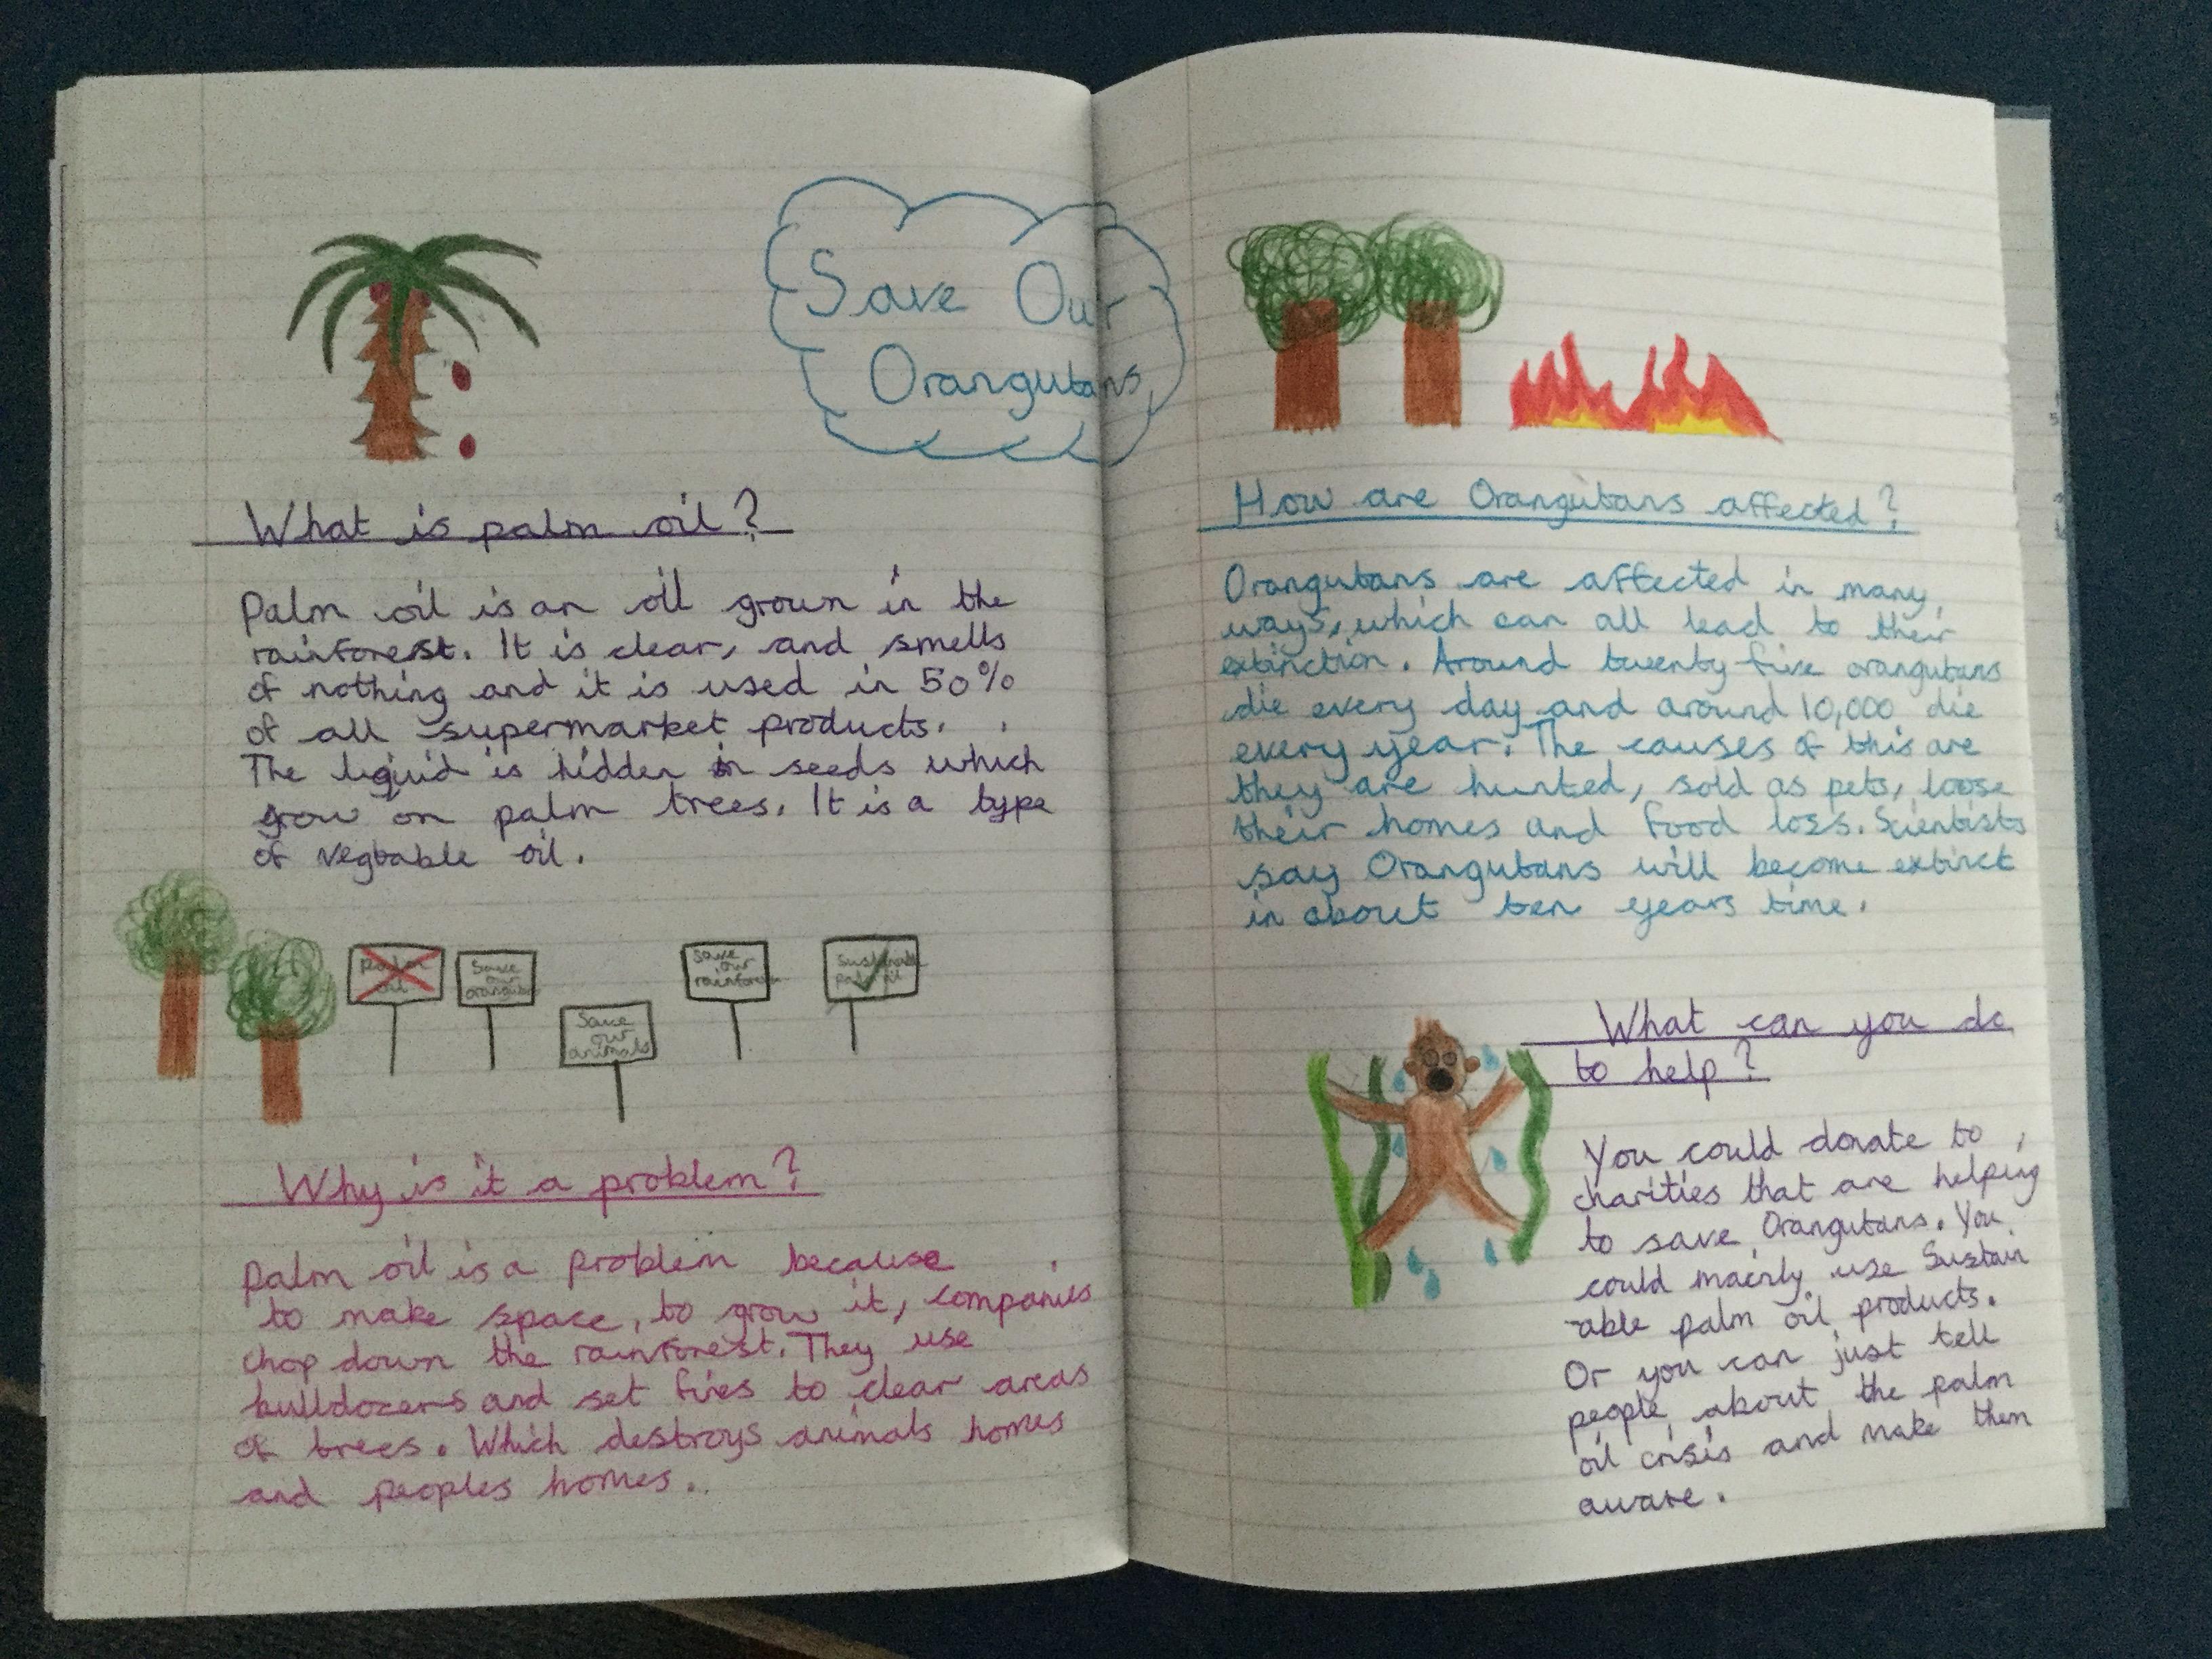 Save Our
Orangutans
What is palm oil?
Palm oil is an oil grown in the
rainforest. It is clear, and smells
of nothing and it is used in 50%
of all supermarket products.
The liquid is hidden in seeds which
grow on palm trees. It is a type
of vegtable oil.
palm
oil
Save
our
orangutan
Save
our
animals
Save
our
rainforest
Sustainable
palm oil
Why is it a problem?
Palm oil is a problem because
to make space, to grow it, companies
chop down the rainforest. They use
bulldozers and set fires to clear areas
of trees. Which destroys animals homes
and peoples homes.
How are Orangutans affected?
Orangutans are affected in many
ways, which can all lead to their
extinction. Around twenty five orangutans
die every day and around 10,000 die
every year. The causes of this are
they are hunted, sold as pets, loose
their homes and food loss. Scientists
say Orangutans will become extinct
in about ten years time.
What can you do
to help?
You could donate to
charities that are helping
to save Orangutans. You
could mainly use Sustain
-able palm oil products.
Or you can just tell
people about the palm
oil crisis and make them
aware.